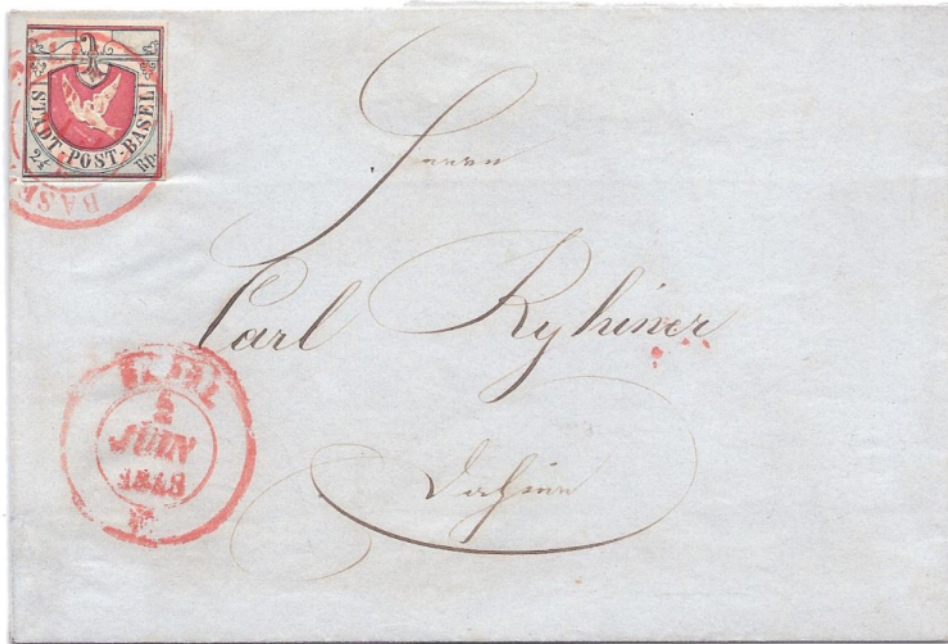 STADT-POST-BASEL
2½ Rp.
BASE
Herrn
Carl Ryhiner
Dahier
BASEL
2
JUIN
1848